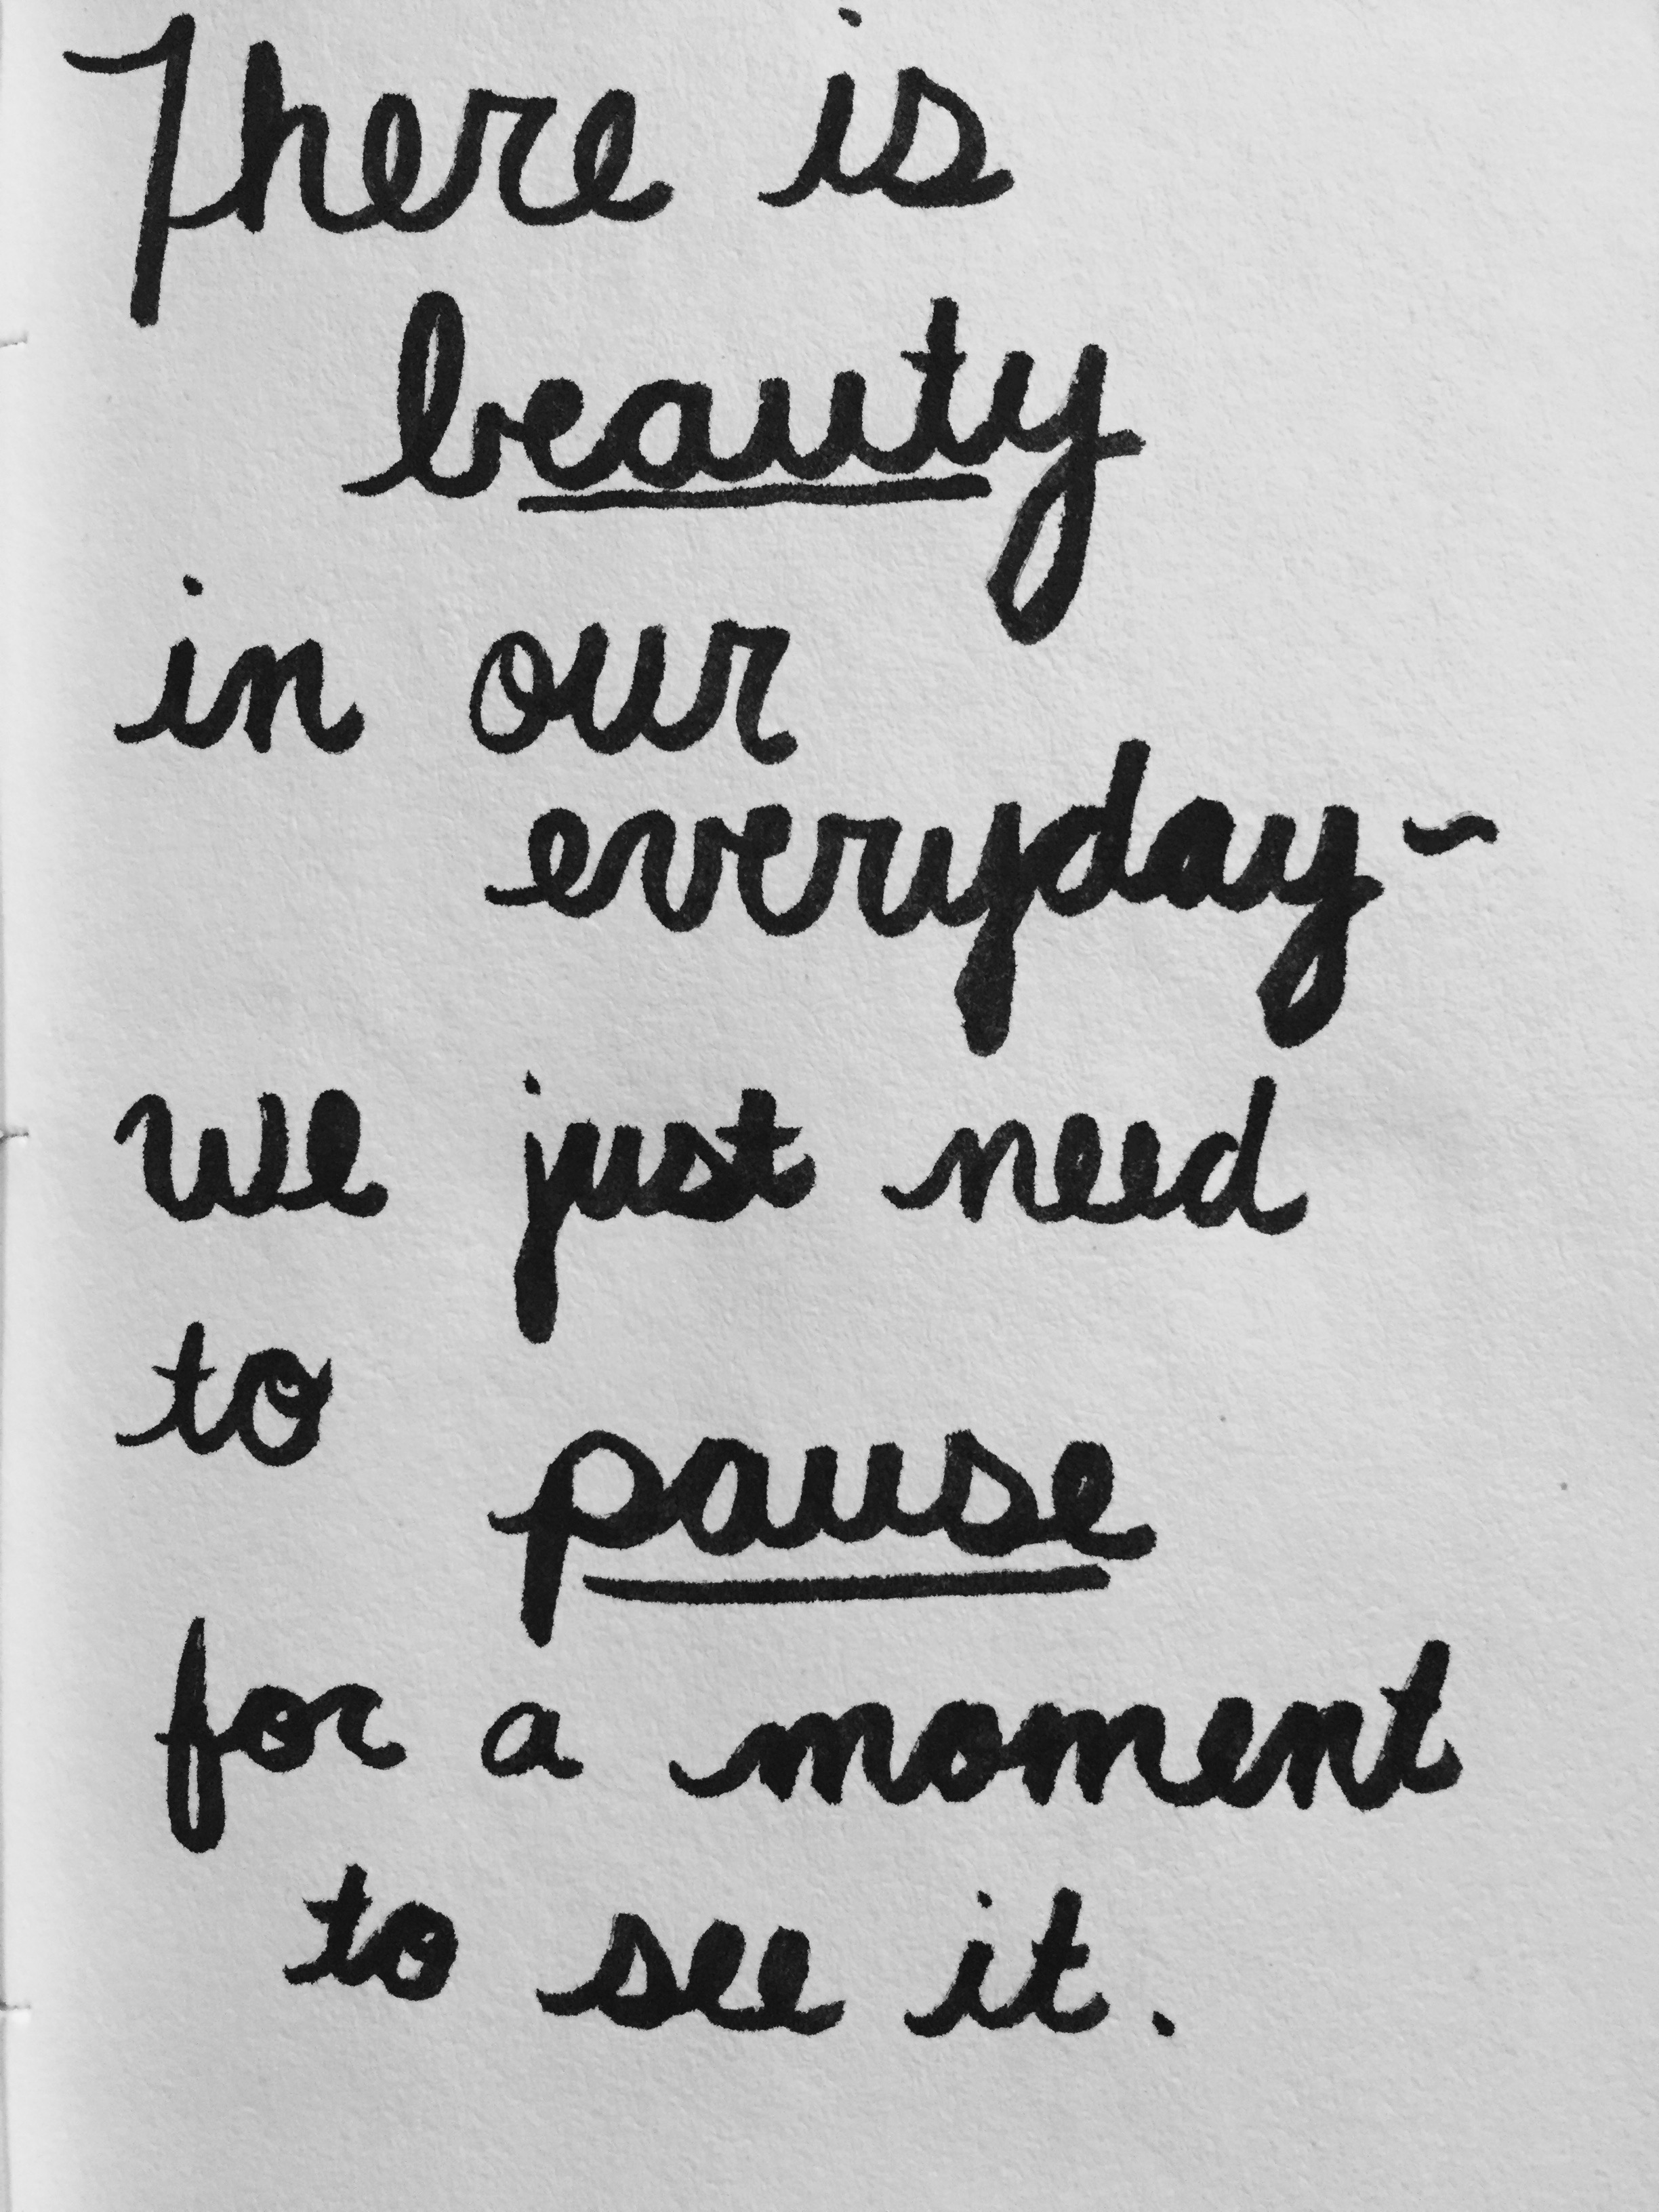 There is
beauty
in our
everyday~
we just need
to
pause
for a moment
to see it.